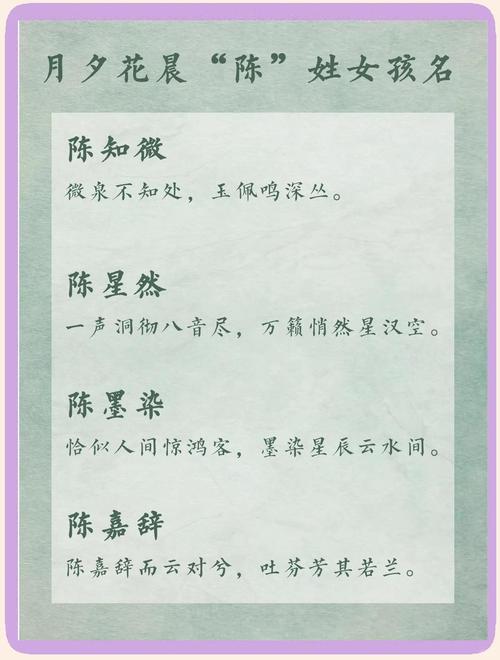 月夕花晨“陈”姓女孩名
陈知微
微泉不知处，玉佩鸣深丛。
陈星然
一声洞彻八音尽，万籁悄然星汉空。
陈墨染
恰似人间惊鸿客，墨染星辰云水间。
陈嘉辞
陈嘉辞而云对兮，吐芬芳其若兰。